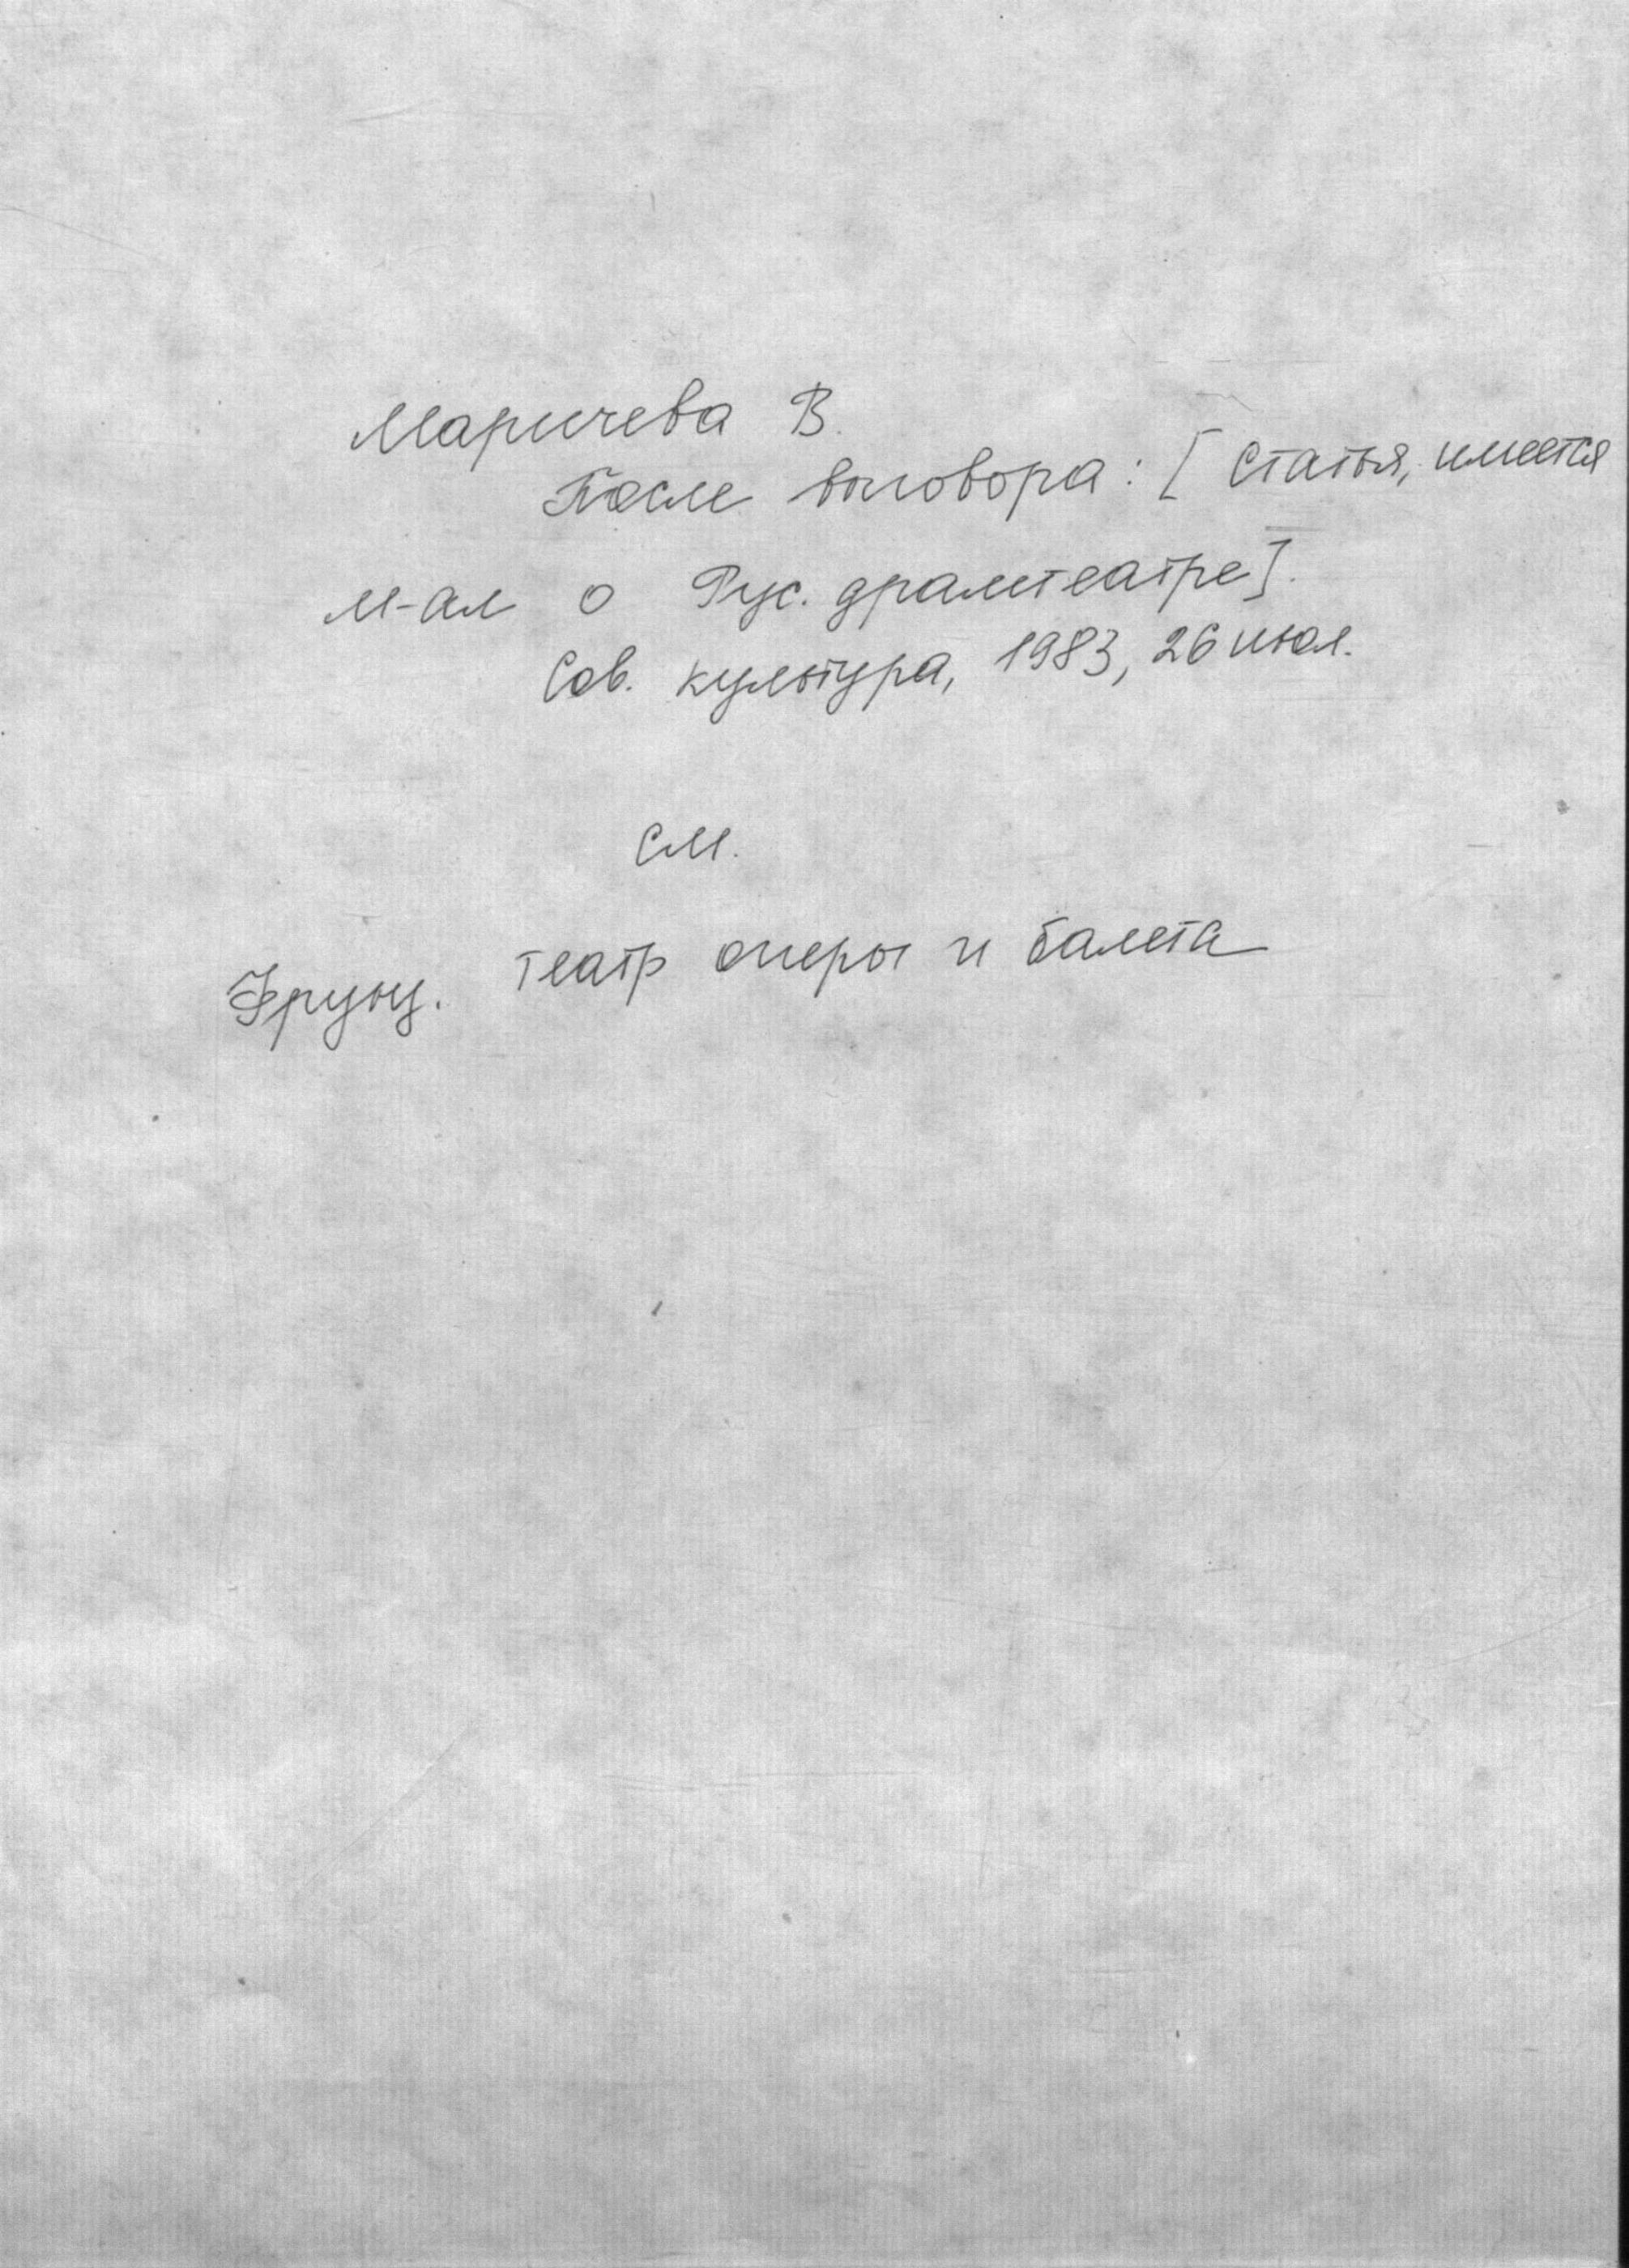 Маричева В.
После выговора: [Статья, имеется
м-ал о Рус. драмтеатре].
Сов. культура, 1983, 26 июл.
см.
Фрунз. театр оперы и балета